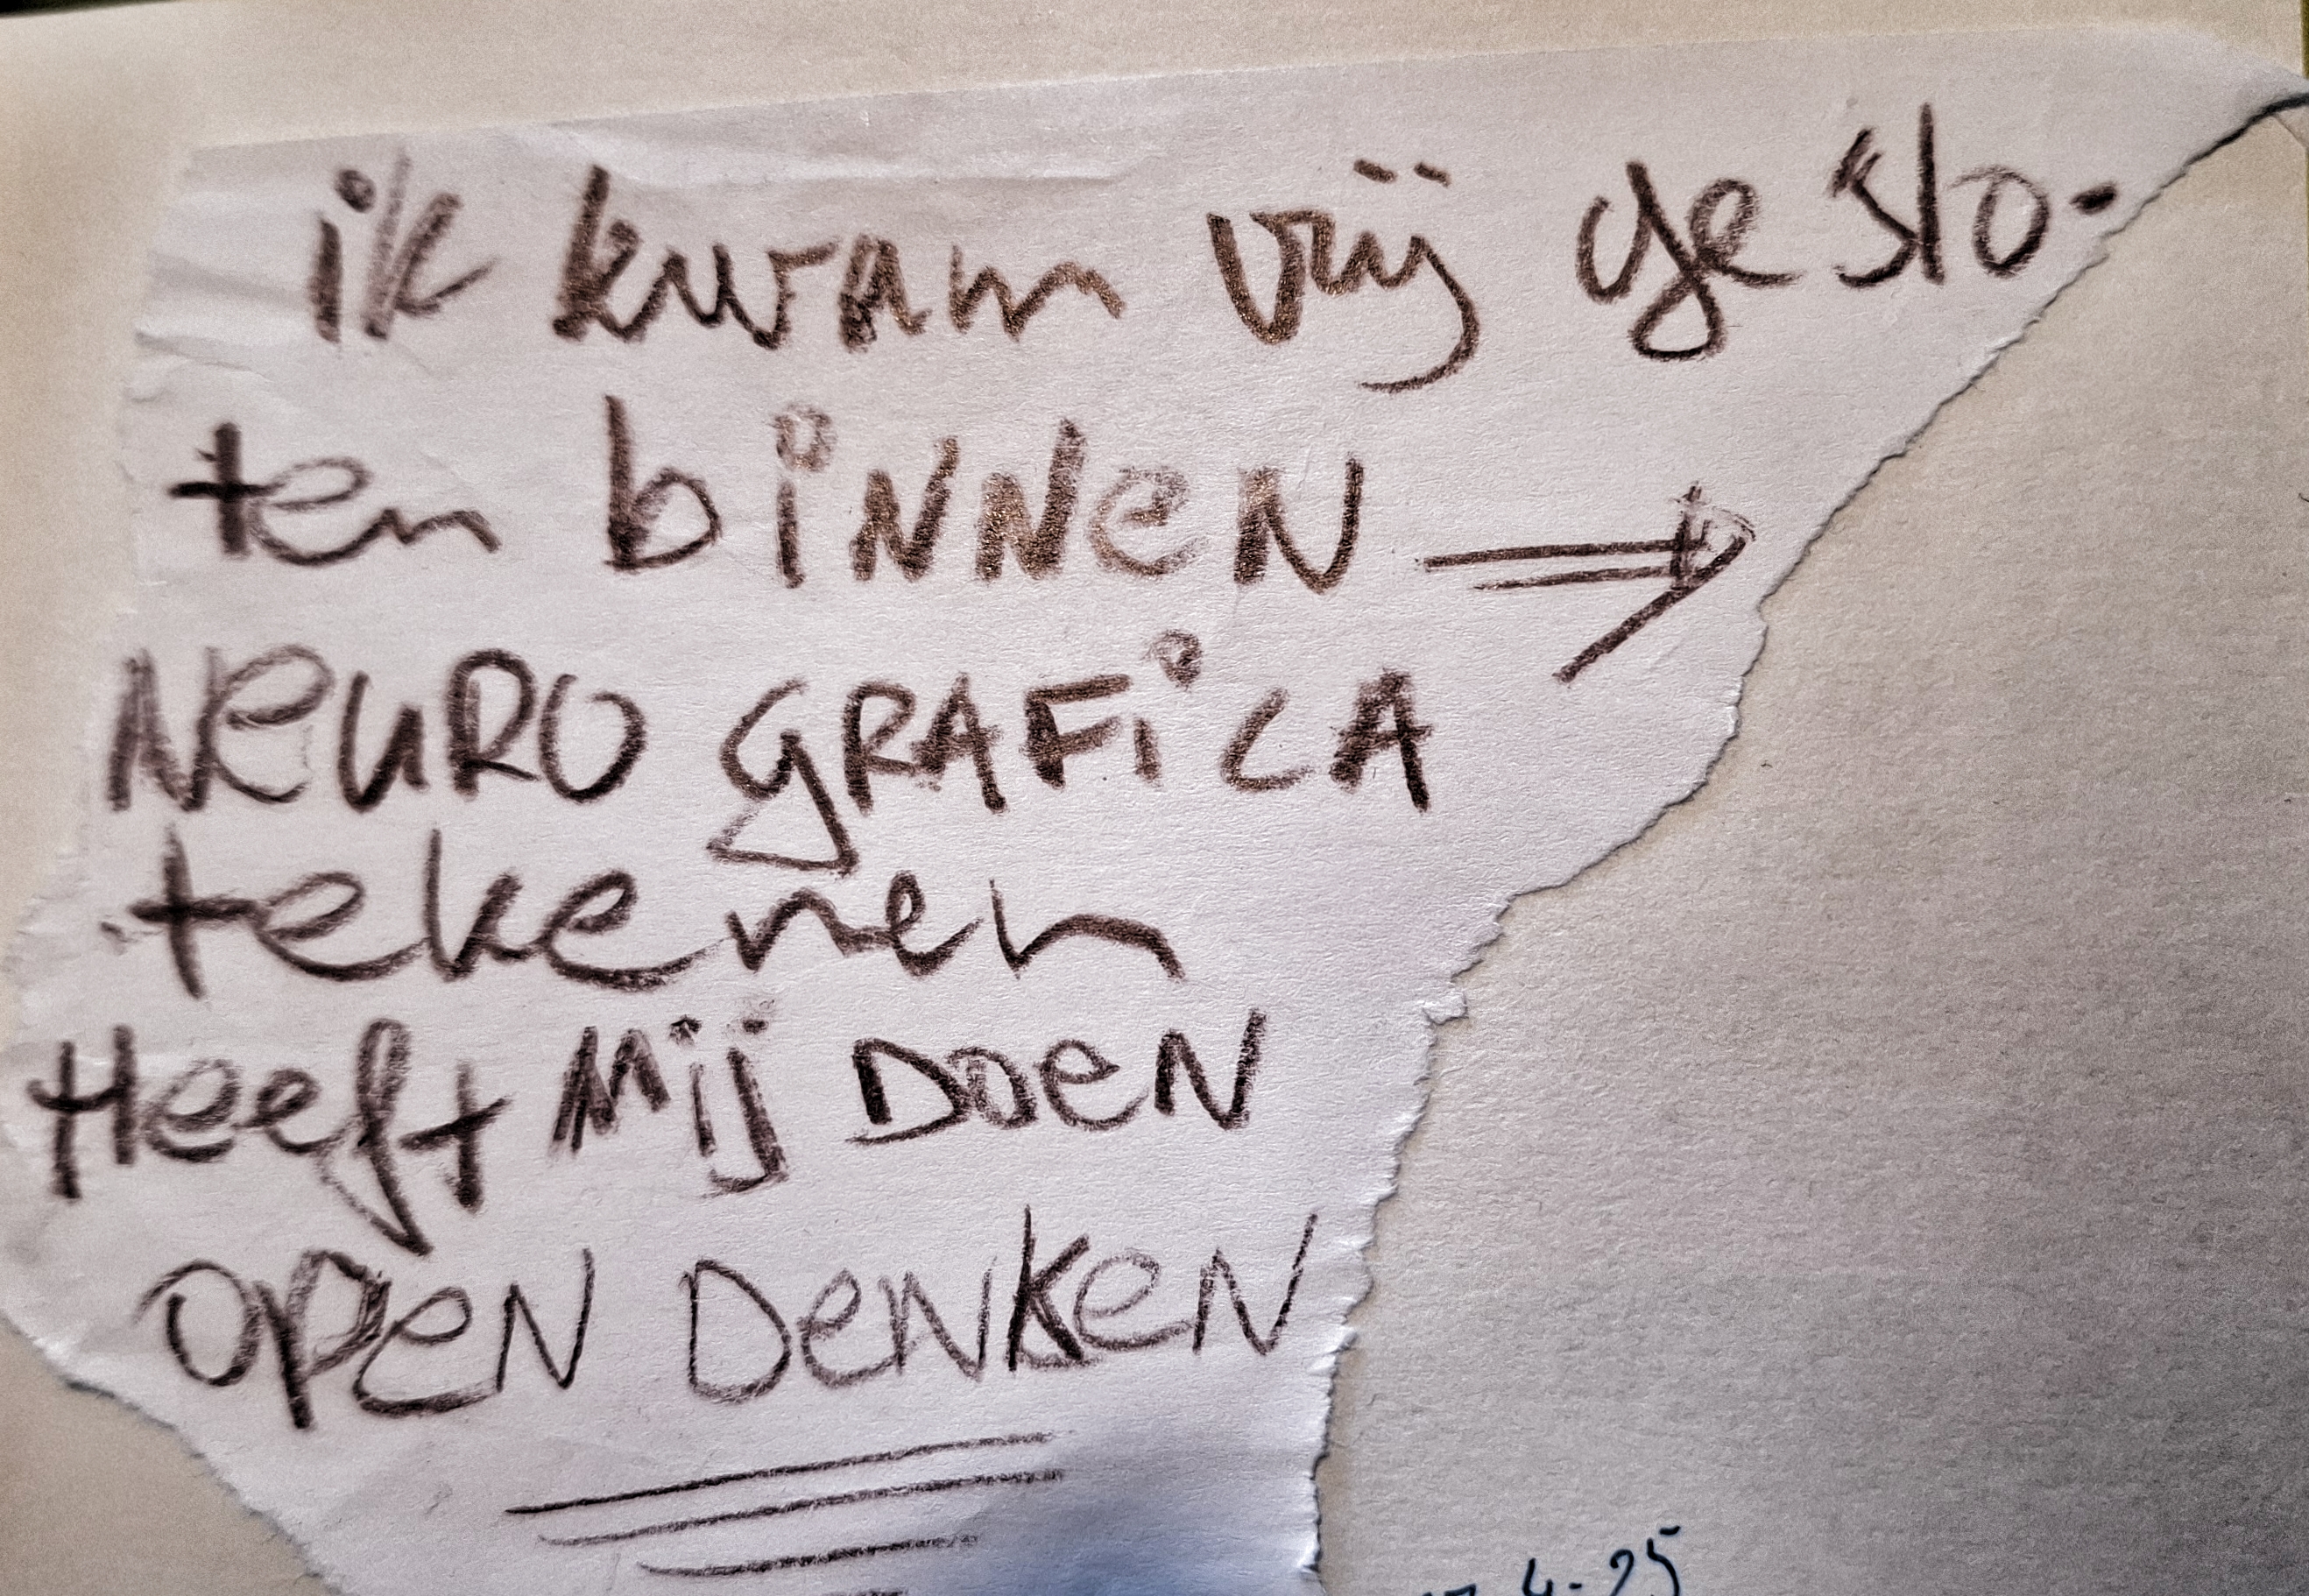 ik kwam vrij geslo-
ten binnen →
Neuro grafica
tekenen
Heeft Mij Doen
open Denken
4-25